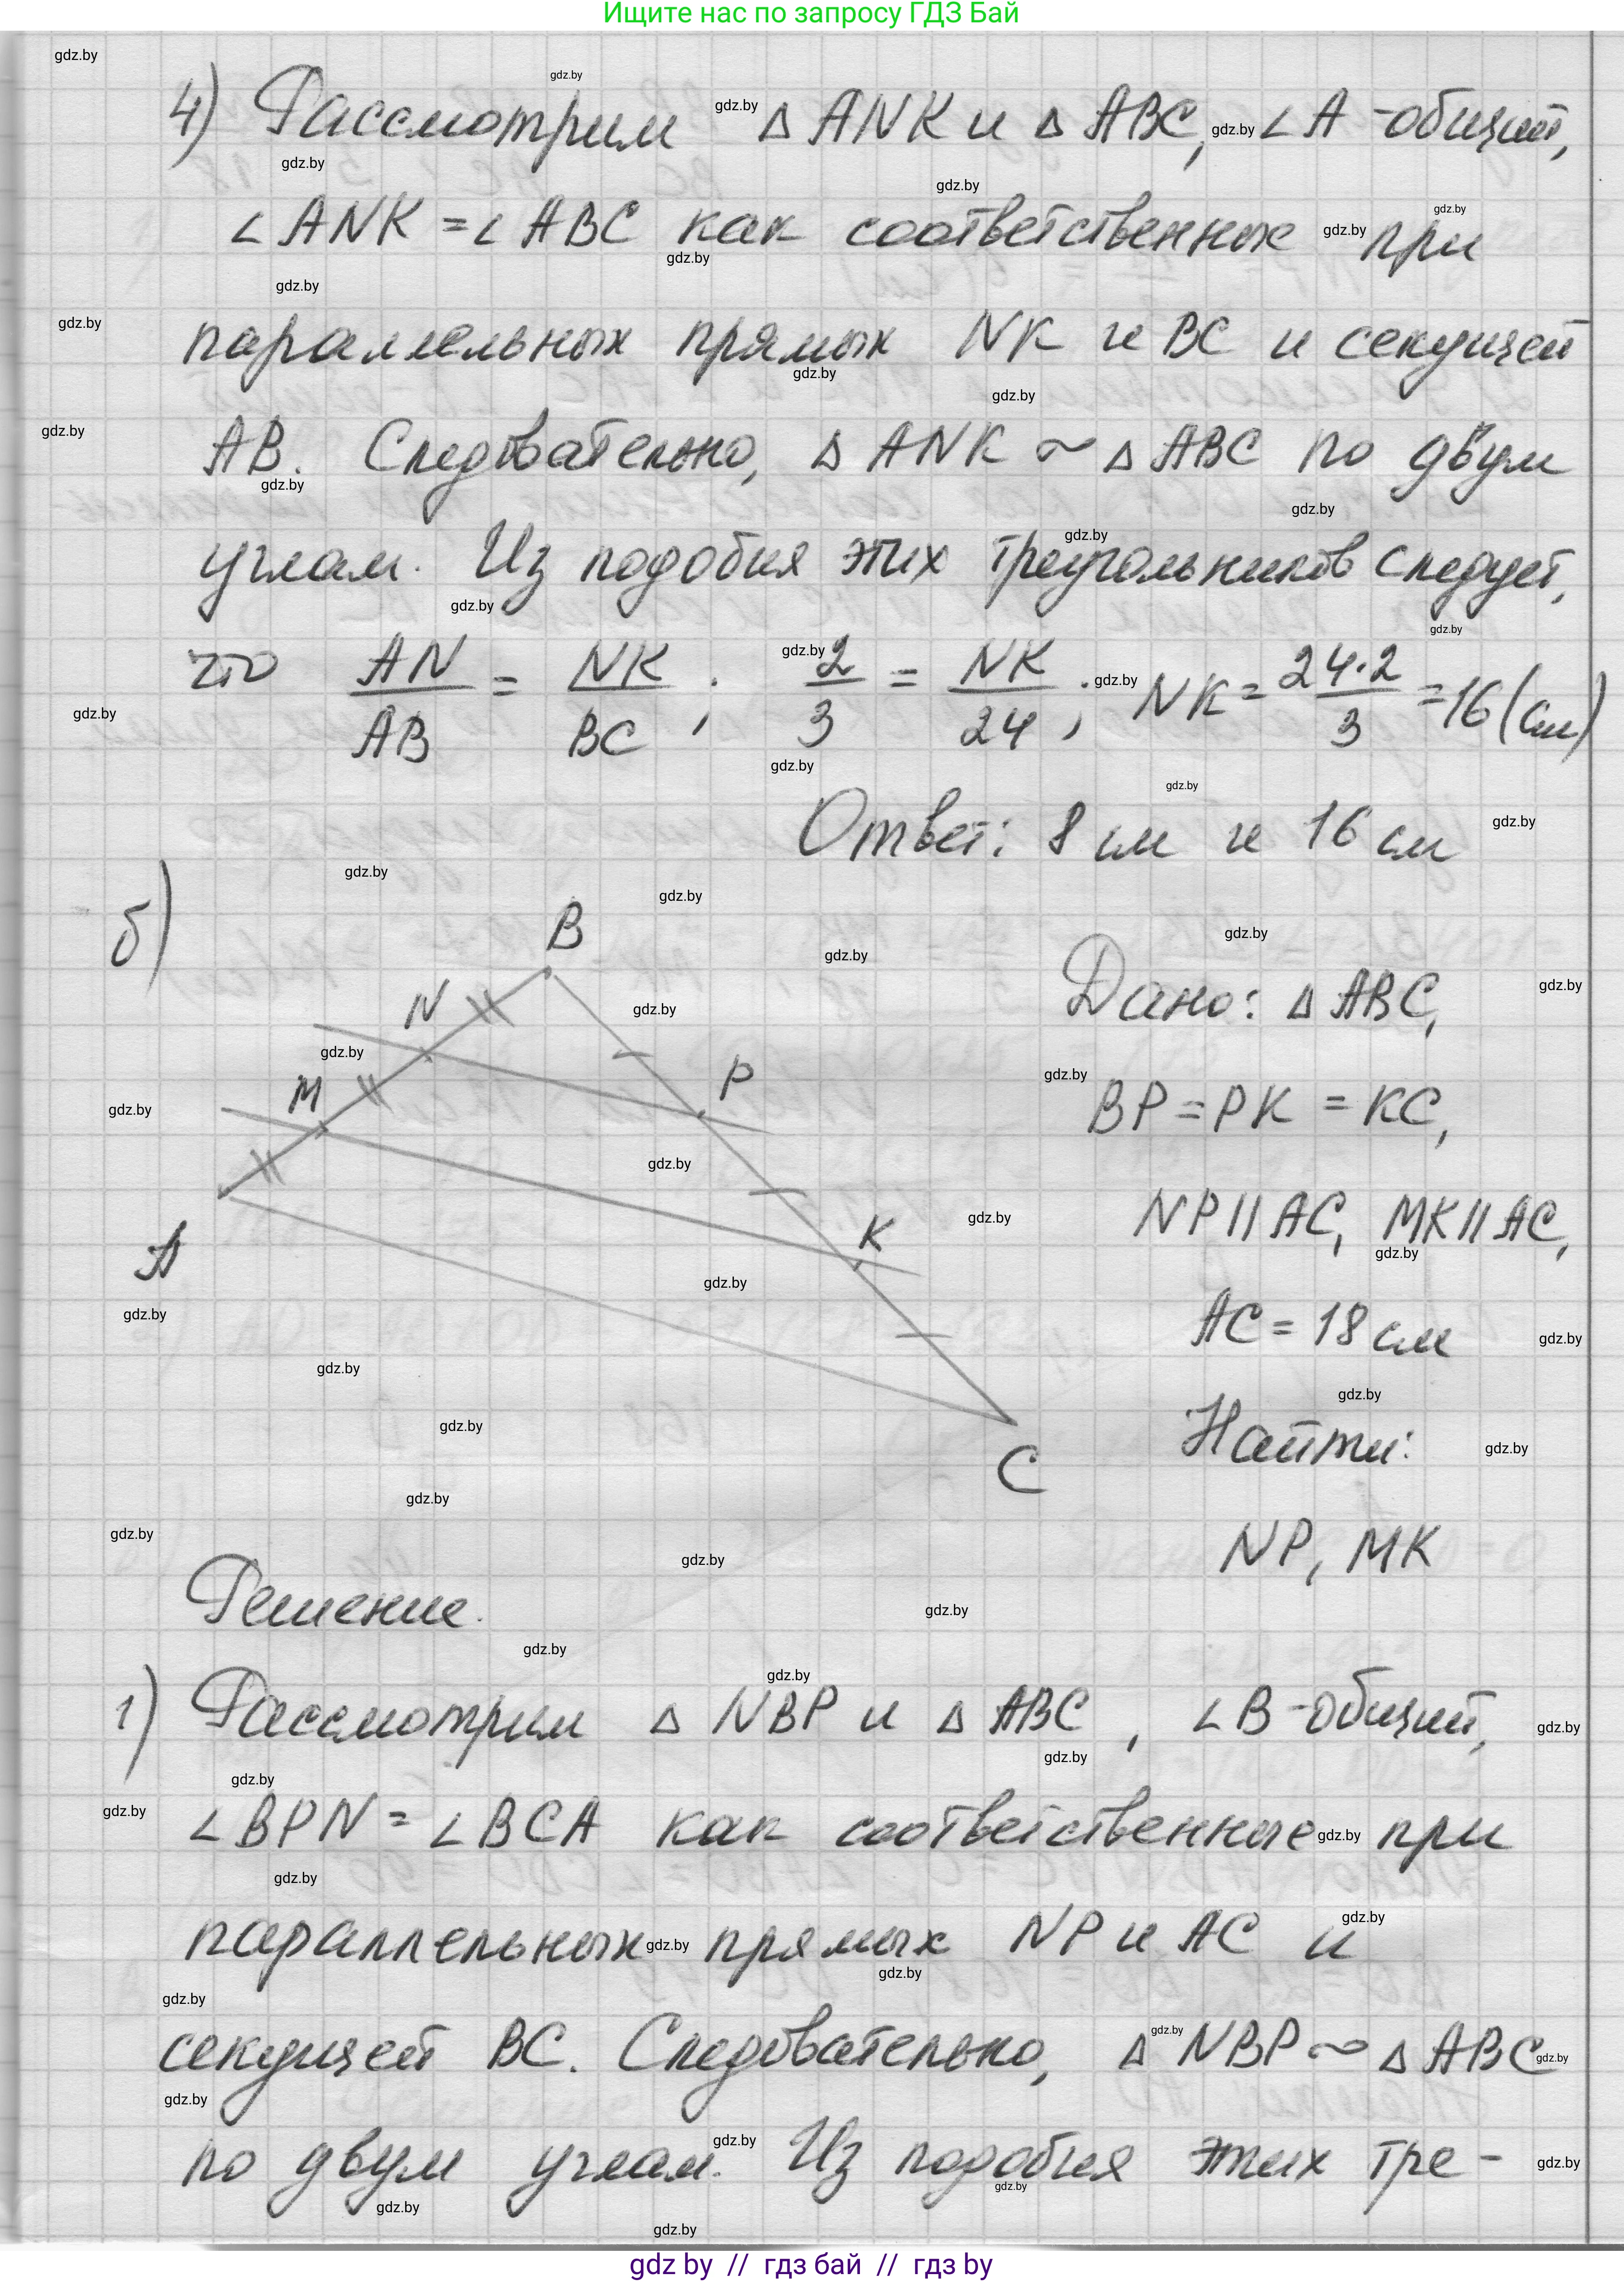 Ищите нас по запросу ГДЗ Бай
4) Рассмотрим △ ANK и △ ABC, ∠A - общий,
∠ANK = ∠ABC как соответственные при
параллельных прямых NK и BC и секущей
AB. Следовательно, △ ANK ~ △ ABC по двум
углам. Из подобия этих треугольников следует,
что AN/AB = NK/BC ; 2/3 = NK/24 ; NK = 24·2/3 = 16 (см)
Ответ: 8 см и 16 см
б)
B
N
M
P
K
A
C
Дано: △ ABC,
BP = PK = KC,
NP || AC, MK || AC,
AC = 18 см
Найти:
NP, MK
Решение.
1) Рассмотрим △ NBP и △ ABC, ∠B - общий,
∠BPN = ∠BCA как соответственные при
параллельных прямых NP и AC и
секущей BC. Следовательно, △ NBP ~ △ ABC
по двум углам. Из подобия этих тре-
gdz by // гдз бай // гдз by